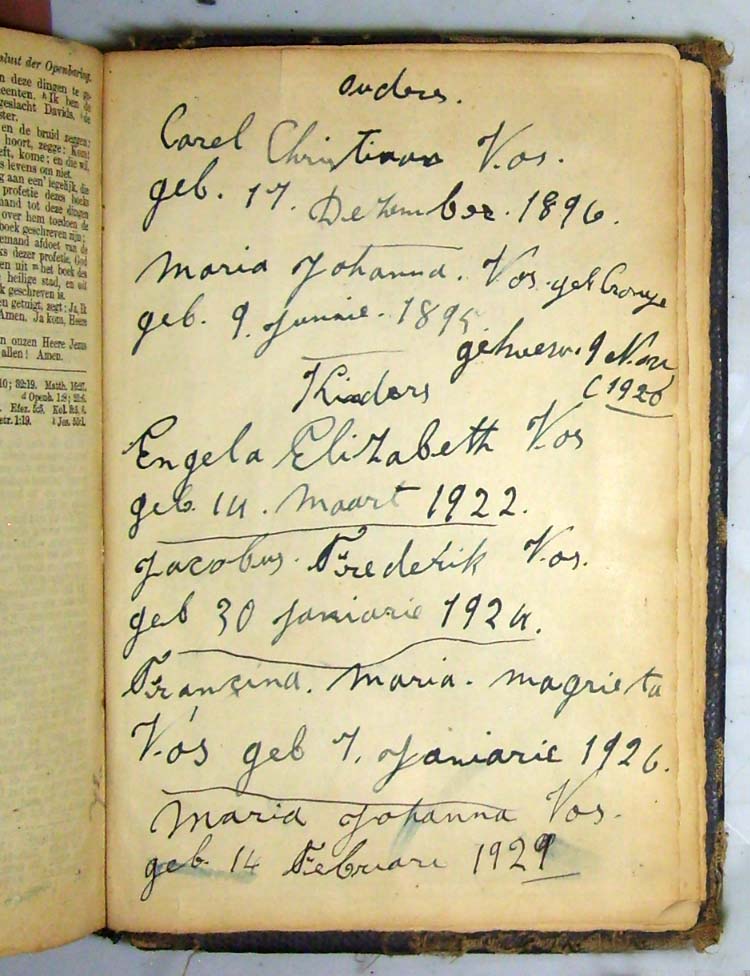 sluit der Openbaring.
n deze dingen te ge-
eenten. Ik ben de
geslacht Davids, de
ster.
en de bruid zeggen:
hoort, zegge: Kom!
eft, kome; en die wil,
s levens om niet.
g aan een' iegelijk, die
profetie dezes boeks
mand tot deze dingen
over hem toedoen de
boek geschreven zijn;
emand afdoet van de
ks dezer profetie, God
en uit het boek des
heilige stad, en uit
k geschreven is.
en getuigt, zegt: Ja, Ik
Amen. Ja kom, Heere
n onzen Heere Jezus
allen! Amen.
10; 82:19. Matth. 16:27.
d Openb. 1:8;
Efez. 5:5. Kol.
etr. 1:19.
ouders.
Carel Christiaan Vos.
geb. 17. Dezember. 1896.
Maria Johanna. Vos. geb Cronje
geb. 9. Junnie. 1895
gehuew. 9 Nov
(1920
Kinders
Engela Elizabeth Vos
geb. 14. Maart 1922.
Jacobus. Frederik Vos.
geb 30 Janiarie 1924.
Francina. Maria. Magrieta
Vos geb 7. Janiarie 1926.
Maria Johanna Vos.
geb. 14 Februari 1929